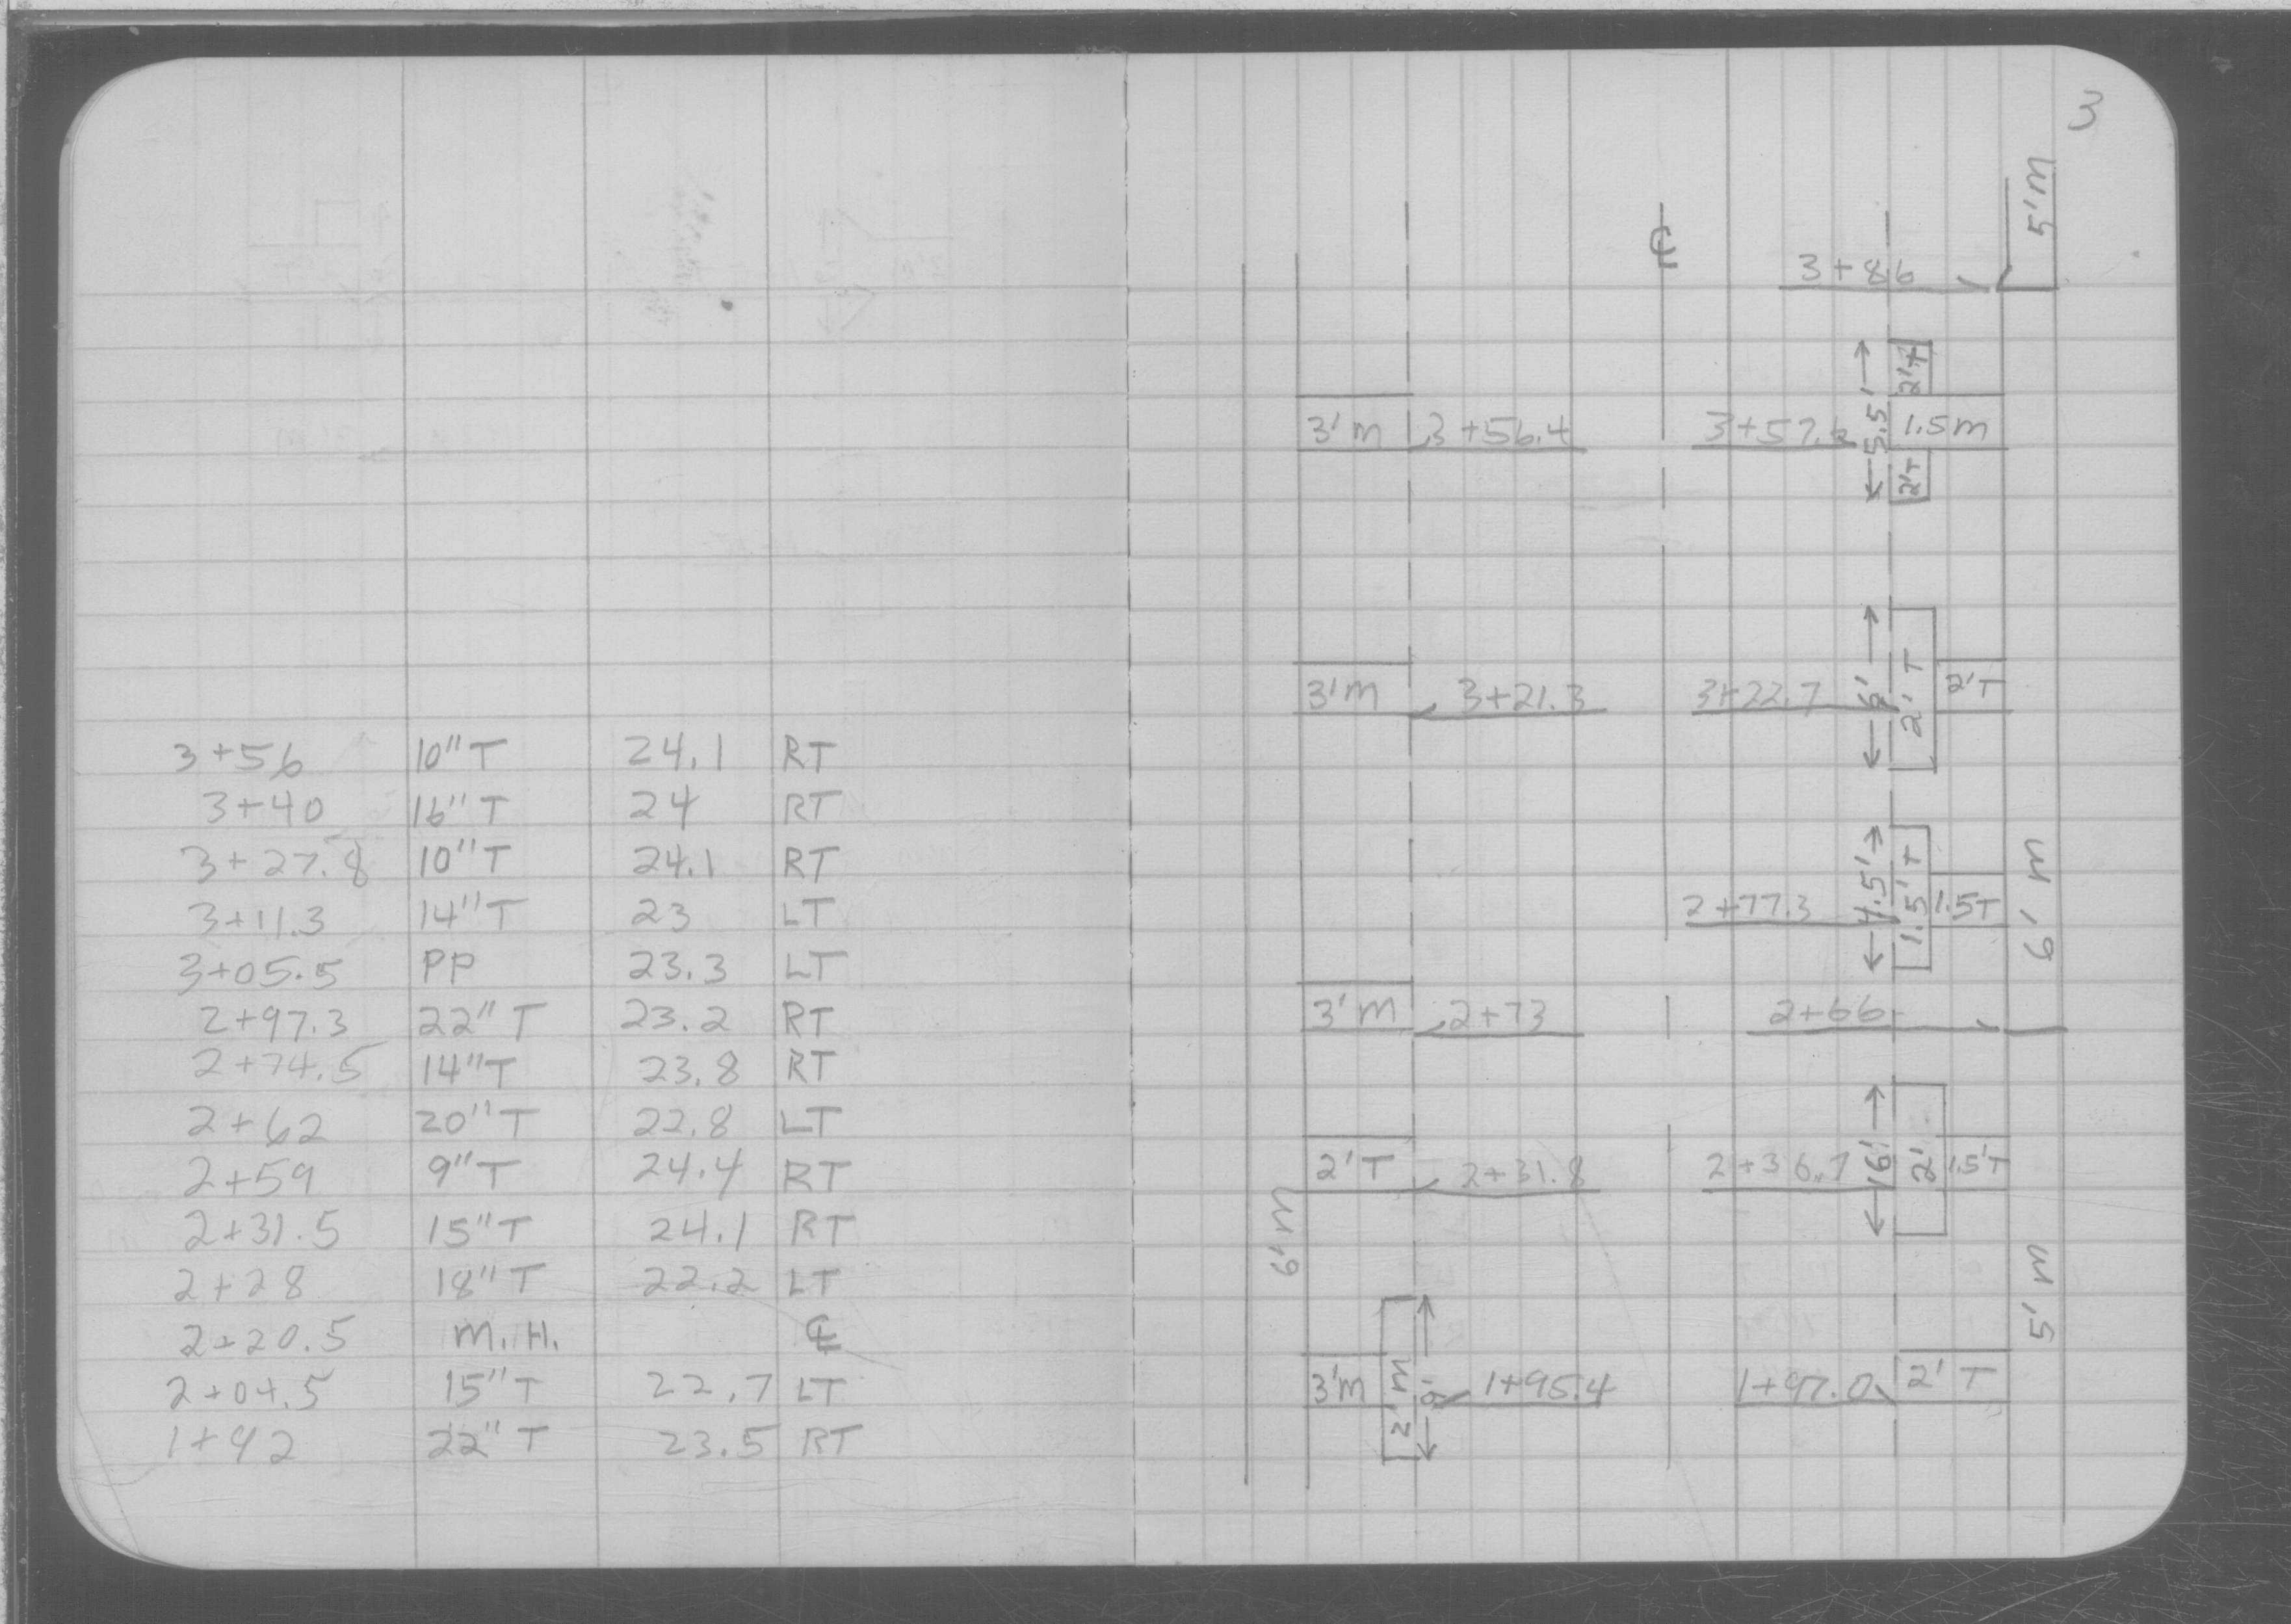 3+56 10"T 24.1 RT
3+40 16"T 24 RT
3+27.8 10"T 24.1 RT
3+11.3 14"T 23 LT
3+05.5 PP 23.3 LT
2+97.3 22"T 23.2 RT
2+74.5 14"T 23.8 RT
2+62 20"T 22.8 LT
2+59 9"T 24.4 RT
2+31.5 15"T 24.1 RT
2+28 18"T 22.2 LT
2+20.5 M.H. ℄
2+04.5 15"T 22.7 LT
1+92 22"T 23.5 RT
3
5'M
℄
3+86
2'T
3'M 3+56.4 5.5' 1.5M
2'T
3'M 3+21.3 3+22.7 6' 2'T 2'T
2+77.3 4.5' 1.5'T 1.5T
6'M
3'M 2+73 2+66
2'T 2+31.8 2+36.7 6' 2' 1.5'T
6'M
5'M
3'M 2'M 1+95.4 1+97.0 2'T